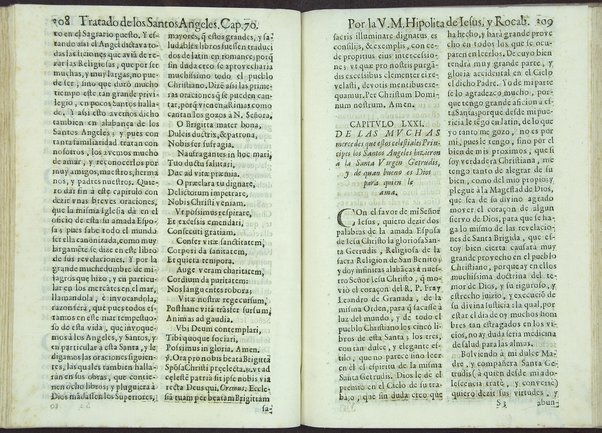 208 Tratado de los Santos Angeles. Cap. 70.
xo en el Sagrario puesto. Y es-
tando assi el Angel dictava to-
das las liciones que avia de re-
zar las Religiosas, que por ser
muchas, y muy largas, no pue-
de ser, sino que duró mucho
tiempo este tan grande privi-
legio, en pocos Santos halla-
do. Y assi esto avemos dicho
tambien en alabança de los
Santos Angeles, y pues con
tanta familiaridad tratan con
nosotros, los avemos mucho
de amar, y reconocerlos por
muy amados, maestros, herma-
nos, y padres nuestros. Quie-
ro dar fin a este capitulo con
dezir unas breves oraciones,
que la misma Iglesia da en el
oficio de su amada Espo-
sa; y pues sabe todo el mund-
do ser ella canonizada, no quie-
ro alargarme mas, como muy
cumplidamente se dize en este libro
de sus revelaciones. Y por la
grande muchedumbre de mi-
lagros que hizo, y en particu-
lar en los mercâtes en el mar,
llamandola, è invocandola,
razon serà, que pues todos es-
tamos en este mar tempestuo-
so de esta vida, que invoque-
mos á los Angeles, y Santos, y
en particular a esta Santa, y le
digamos las oraciones siguien-
tes, las quales tambien halla-
ran en sus obras, que contie-
nen ocho libros; y pluguiera á
Dios mâdassen los Superiores,
mayores, q̃ estos grandes, y sa-
ludables libros fuessen traduci-
dos de latin en romance; porq̃
sin duda creo se aprovecharia
muchissimo todo el pueblo
Christiano. Dirè assi las prime-
ras oraciones que se pueden can-
tar, porq̃ vienen assi nias como
se cantan los gozos á N. Señora.
O Brigitta mater bona,
Dulcis ductrix, & patrona,
Nobis fer suffragia.
Naufragantes in hoc mari,
Tuo ductu salutari,
Duc ad vitæ præmia.
O præclara tu dignare,
Delictorum impetrare,
Nobis Christi veniam.
Ut possimus respirare,
Et excelsis emendari,
Consecuti gratiam.
Confer vitæ sanctitatem,
Corporis da sanitatem,
Et quieta tempora.
Auge veram charitatem,
Cordium da puritatem:
Nos lange cuncta robora.
Vitæ nostræ regecursum,
Posthane vitâ trâsfer sursum,
Animas ad gaudia.
Ubi Deum contemplari,
Tibi quoque sociari,
Possimus in gloria. Amen.
℣. Ora pro nobis beata Brigitta
Spõsa Christi præelecta. ℟. ut ad
celestẽ patriâ sit ipse nobis via
recta Deus qui, Oremus; Eccle-
siâ tuam per beatam Brigittam
sa-
Por la V. M. Hipolita de Iesus, y Rocab. 209
sacris illuminare dignatus es
consilijs, & exemplis, con ce-
de propitius eius intercessio-
ne, vt quæ pro nostris purgã-
dis excessibus clementer ei re-
velasti, devotis mentibus exe-
quamur. Per Christum Domi-
num nostrum. Amen.
CAPITVLO LXXI.
DE LAS MVCHAS
mercedes que estos celestiales Prin-
cipes los Santos Angeles hizieron
à la Santa Virgen Getrudis,
y de quan bueno es Dios
para quien le
ama.
CON el favor de mi Señor
Iesus, quiero dezir dos
palabras de la amada Esposa
de Iesu Christo la gloriosa San-
ta Getrudis, Religiosa de la
sacra Religion de San Benito; y
doy infinitas alabãças á nues-
tro Señor Iesu Christo, q̃ mo-
viò el coraçon del R. P. Fray
Leandro de Granada, de la
misma Orden, para q̃ sacasse à
luz del mundo, y de todo el
pueblo Christiano los cinco li-
bros de esta Santa, y los tres,
con tan dulce, y elegante es-
tilo, que no parece sino leer
en el espiritu de la misma Santa
Getrudis. Dios le de el
premio en el Cielo de su traba-
jo, que sin duda creo que lo
ha hecho, y harà grande pro-
vecho en los que lo leeràn, y
tendrà muy grande parte, y
gloria accidental en el Cielo
el dicho Padre. Yo de mi parte
se lo agradezco mucho, por-
que tengo grande aficion a es-
ta Santa; porque desde mi pue-
ricia le rezo en latin, de lo que
yo tanto me gozo, no es por
mi, pues le tengo, sino por el
bien de mis proximos, que si
soy verdadera Christiana, me
tengo tanto de alegrar de su
bien, como del mio propio; y
plegue à la Magestad de Dios,
que sea de su divino agrado
mover el coraçon de algun
siervo de Dios, para que se ha-
ga lo mismo de las revelacio-
nes de Santa Brigida, que es-
toy bien cierta causará muy
grande provecho en el pueblo
Christiano, porque ay en ellos
muchissima doctrina del te-
mor de Dios, y su rigoroso, y
estrecho juizio, y execuciõ de
su divina justicia con lo qual, por
estar el dia de oy muchos hom-
bres tan estragados en los vi-
cios, no ay duda seria medicina
de salud para las almas.
Bolviendo à mi dulce Ma-
dre, y compañera Santa Getru-
dis (à quien desde mi ado-
lescencia tratè, y converié)
quiero dezir de sus virtudes, y
S 3 abun-